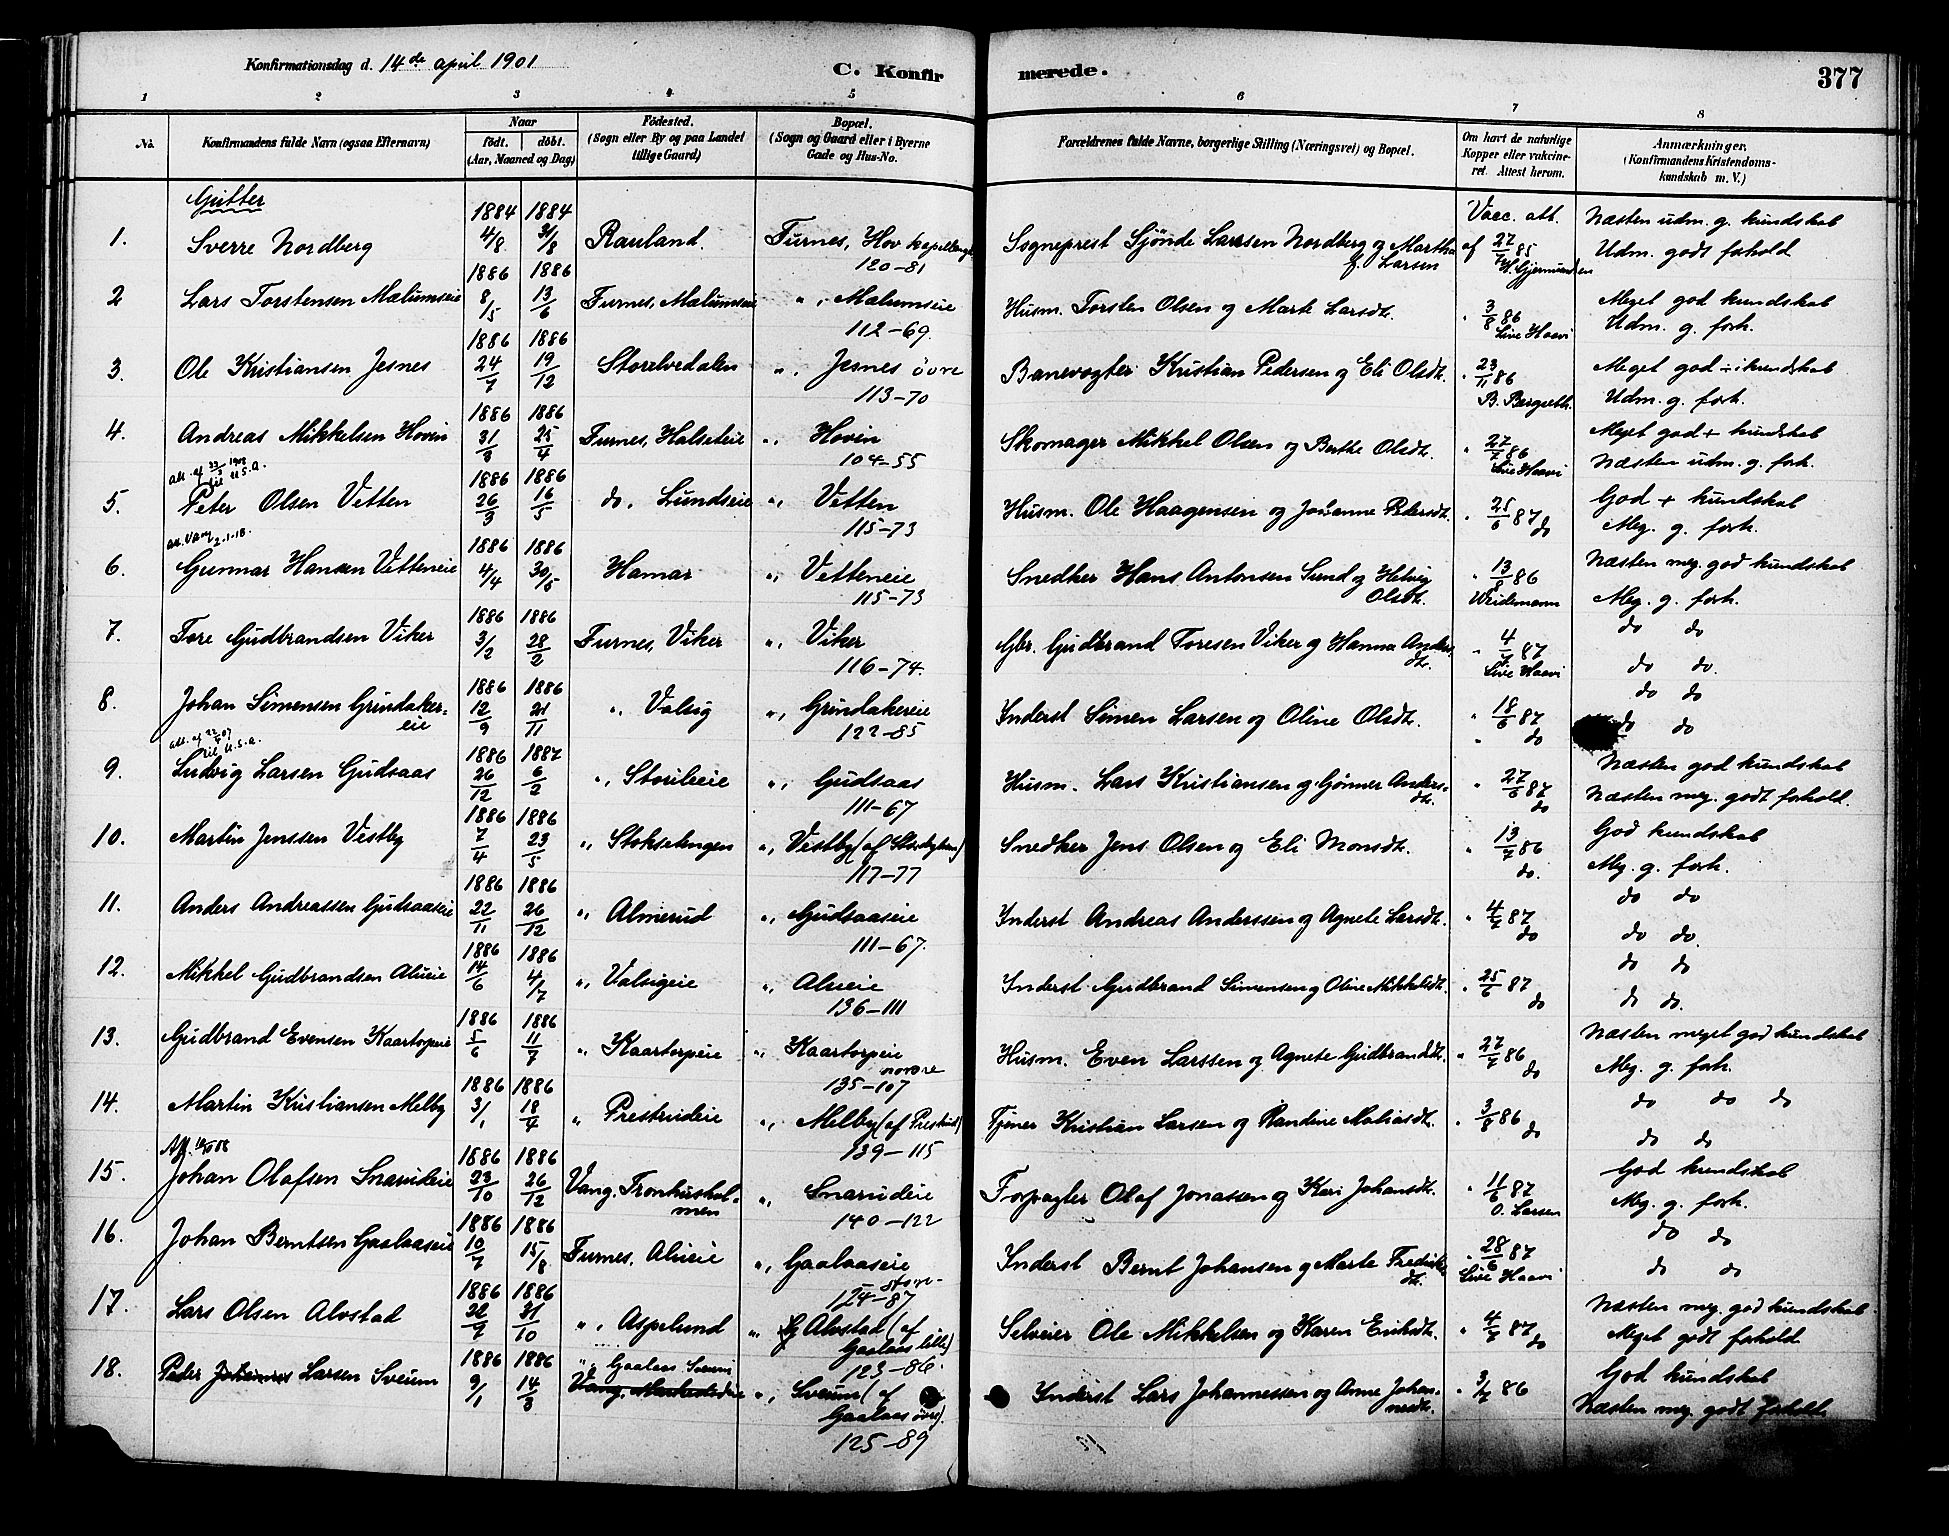 Konfirmationsdag d. 14de april 1901
C. Konfir merede.
377
1 2 3 4 5 6 7 8
No.
Konfirmandens fulde Navn (ogsaa Efternavn)
Naar
født. døbt.
(Aar, Maaned og Dag)
Fødested.
(Sogn eller By og paa Landet
tillige Gaard)
Bopæl.
(Sogn og Gaard eller i Byerne
Gade og Hus-No.
Forældrenes fulde Navne, borgerlige Stilling (Næringsvei) og Bopæl.
Om havt de naturlige
Kopper eller vakcine-
ret. Attest herom.
Anmærkninger.
(Konfirmandens Kristendoms-
kundskab m. V.)
Gutter
1884 1884 Vacc. att. Næsten udm. g. kundskab
1. Sverre Nordberg 4/8 31/8 Rauland. Furnes, Hov kapellangd Sogneprest Sjönde Larsen Nordberg og Martha af 27/7 85 Udm. godt forhold
120-81 f. Larsen H. Gjermundsen
1886 1886 Meget god kundskab
2 Lars Torstensen Mælumseie 8/5 13/6 Furnes, Mælumseie ", Mælumseie Husm. Torsten Olsen og Marte Larsdt. " 3/8 86 Udm. g. forh.
112-69. Live Haavi
1886 1886
3. Ole Kristiansen Jesnes 24/7 19/12 Storelvedalen ", Jesnes övre Banevogter Kristian Pedersen og Eli Olsdt. " 23/11 86 Meget god ÷ kundskab
113-70 B. Bergseth. Udm. g. forh.
1886 1886
4. Andreas Mikkelsen Hovin 31/3 25/4 Furnes, Halseteie ", Hovin Skomager Mikkel Olsen og Berthe Olsdt. " 27/7 86 Meget god + kundskab
104-55 Live Haavi Næsten udm. g. forh.
til U.S.A. 1886 1886
5. Peter Olsen Vetten 26/3 16/5 do, Lundseie ", Vetten Husm. Ole Haagensen og Johanne Pedersdt. " 25/6 87 do God + kundskab
115-73 Meg. g. forh.
att. Vang 2-1-18. 1886 1886
6. Gunnar Hansen Vetteneie 4/4 30/5 Hamar ", Vetteneie Snedker Hans Antonsen Sund og Helvig " 13/8 86 Næsten meg. god kundskab
115-73 Olsdt. Weidemann Meg. g. forh.
1886 1886 do do
7. Tore Gudbrandsen Viker 3/2 28/2 Furnes, Viker ", Viker Gbr. Gudbrand Toresen Viker og Hanna Anders- " 4/7 87 do do.
116-74. dt. Live Haavi
1886 1886 do do
8. Johan Simensen Grindaker- 12/9 21/11 " Valsig ", Grindakereie Inderst Simen Larsen og Oline Olsdt. " 18/6 87 do do
eie 122-85 " do
til U.S.A. 1886 1887
9. Ludvig Larsen Gudsaas 26/12 6/2 ", Storileie ", Gudsaas Husm. Lars Kristiansen og Gönner Anders- " 27/6 87 Næsten god kundskab
111-67 dt. do Næsten meg. godt forhold.
1886 1886
10. Martin Jenssen Vestby 7/4 23/5 " Stoksetengen ", Vestby Snedker Jens Olsen og Eli Monsdt. " 13/7 86 God kundskab
117-77 do. Meg. g. forh.
1886 1886 do do
11. Anders Andreassen Gudsaaseie 22/11 26/12 ", Almerud ", Gudsaaseie Inderst Andreas Anderssen og Agnete Larsdt. " 4/7 87 do do.
111-67. do
1886 1886 do do
12. Mikkel Gudbrandsen Alueie 14/6 4/7 ", Valsigeie ", Alueie Inderst Gudbrand Simensen og Oline Mikkelsdt. " 25/6 87 do do.
136-111 do
1886 1886
13. Gudbrand Evensen Kaartorpeie 5/6 11/7 " Kaartorpeie " Kaartorpeie Husm. Even Larssen og Agnete Gudbrandsdt. " 27/7 86 Næsten meget god kundskab
nordre
135-107 do Meg. g. forh.
1886 1886
14. Martin Kristiansen Melby 3/1 18/4 " Prestrudeie ", Melby (af Prestrud) Tjener Kristian Larsen og Randine Mathiasdt. " 3/8 86 do do do
139-115 do do do
1886 1886
15. Johan Olafsen Snarudeie 23/10 26/12 Vang, Tronhushol- " Snarudeie Forpagter Olaf Jonassen og Kari Johansdt. " 11/6 87 God kundskab
men 140-122 O. Larsen Meg. g. forh.
1886 1886
16. Johan Berntsen Gaalaaseie 10/7 15/8 Furnes, Alueie ", Gaalaaseie Inderst Bernt Johansen og Marte Fredriks- " 28/6 87 do do
store-
124-87 dt. Live Haavi do do
1886 1886
17. Lars Olsen Alvstad 22/7 31/10 ", Aspelund " Alvstad (af Selveier Ole Mikkelsen og Karen Eriksdt. " 4/7 87 Næsten meg. god kundskab
Gaalaas lille) do Meget godt forhold
123-86.
1886 1886 " Gaalaas Sveum
18. Peder Johannes Larsen Sveum 9/1 14/3 Vang, ", Sveum (af Inderst Lars Johannessen og Anne Johan- " 3/7 86 God kundskab
Gaalaas övre). nesdt. Næsten meg. godt forhold
125-89